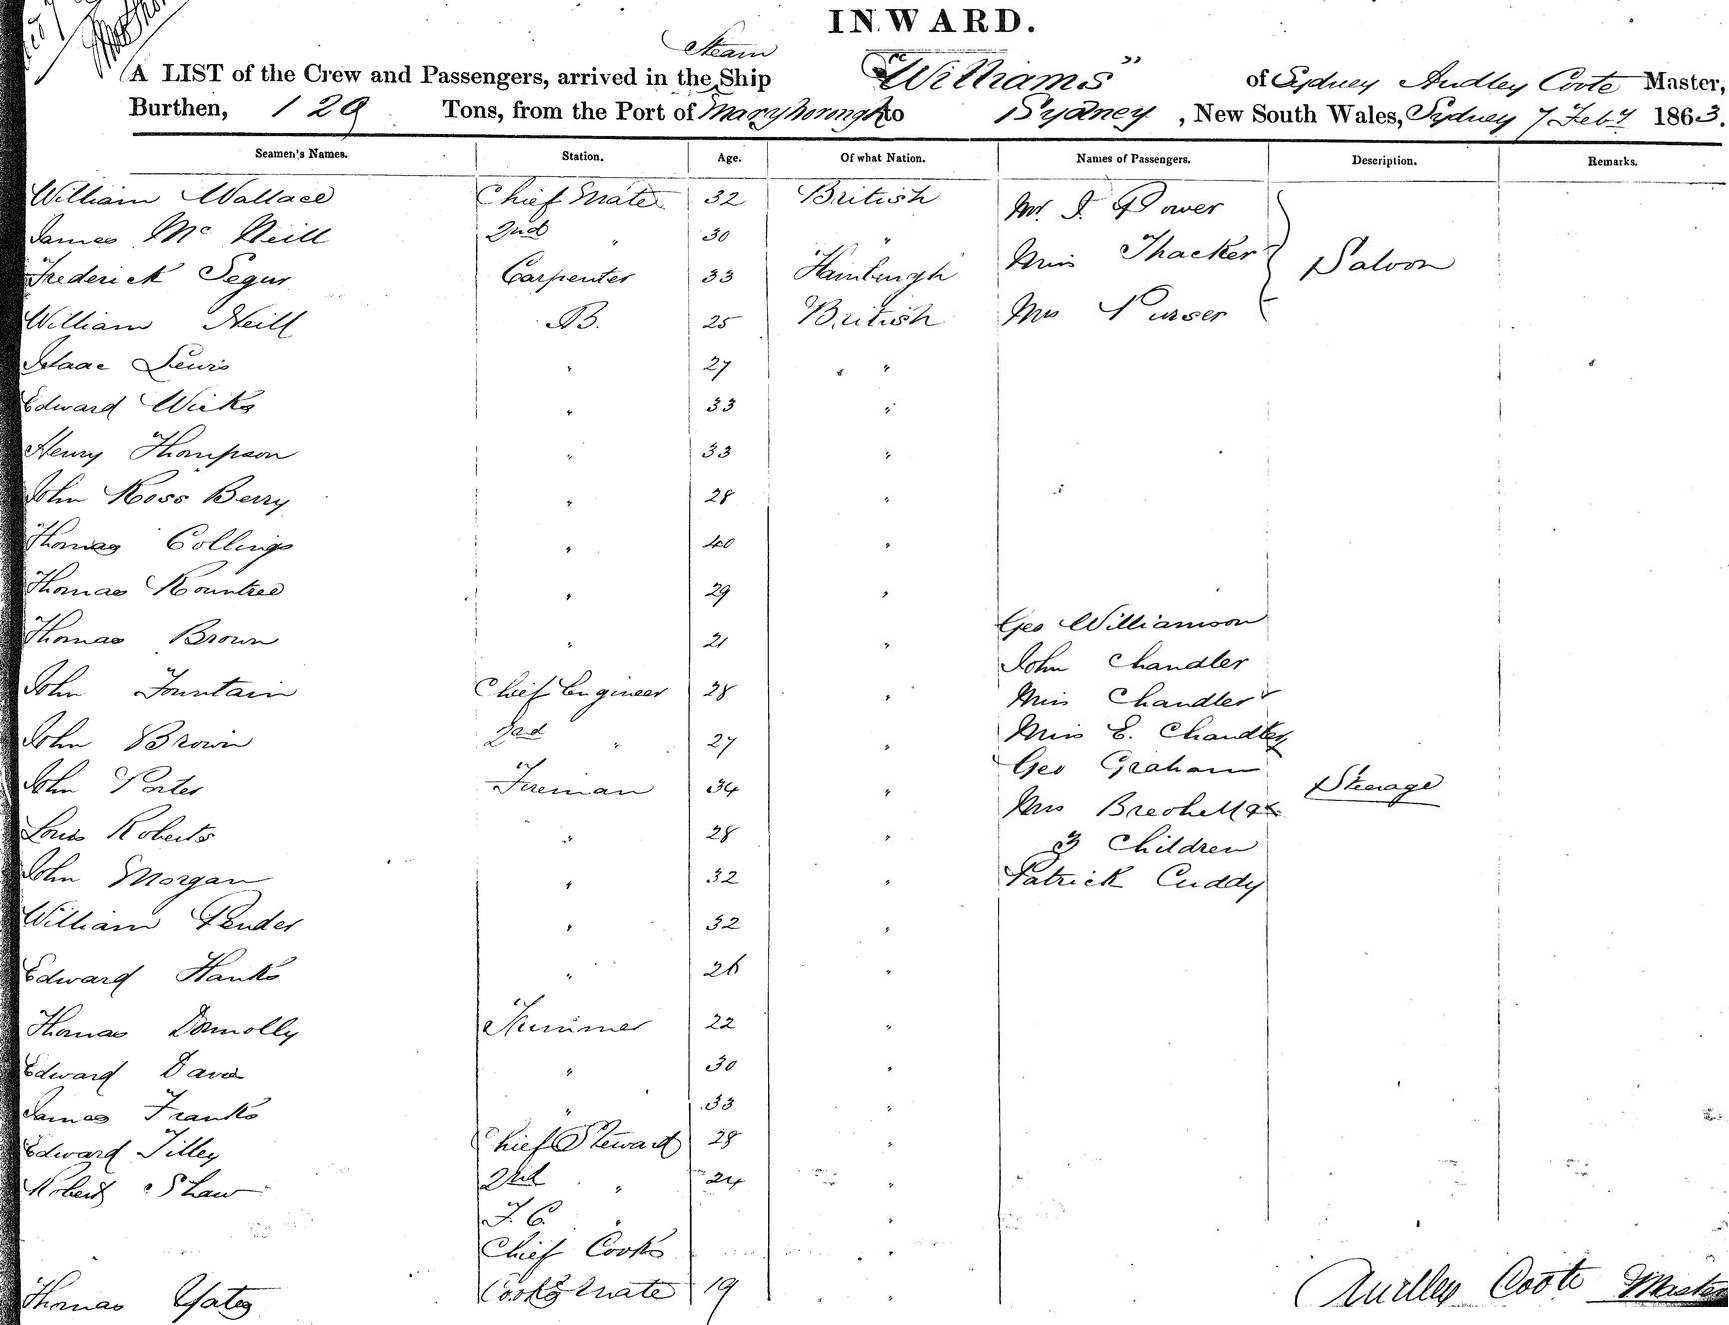 INWARD.
Steam
A LIST of the Crew and Passengers, arrived in the Ship "Williams" of Sydney Audley Coote Master,
Burthen, 129 Tons, from the Port of Maryborough to Sydney, New South Wales, Sydney 7 Feby 1863.
Seamen's Names. Station. Age. Of what Nation. Names of Passengers. Description. Remarks.
William Wallace Chief Mate 32 British Mr. J. Power
James Mc Neill 2nd " 30 " Miss Thacker Saloon
Frederick Segur Carpenter 33 Hamburgh
William Neill AB. 25 British Mrs Purser
Isaac Lewis " 27 "
Edward Wicks " 33 "
Henry Thompson " 33 "
John Ross Berry " 28 "
Thomas Collings " 40 "
Thomas Rountree " 29 "
Geo Williamson
Thomas Brown " 21 "
John Chandler
John Fountain Chief Engineer 28 " Miss Chandler
John Brown 2nd " 27 " Miss E. Chandler
Geo Graham
John Porter Fireman 34 " Steerage
Mrs &
Louis Roberts " 28 "
3 Children
John Morgan " 32 " Patrick Cuddy
William Pender " 32 "
Edward Hanks " 26 "
Thomas Donnolly Trimmer 22 "
Edward Davis " 30 "
James Franks " 33
Edward Tilley Chief Steward 28 "
Robert Shaw 2nd " 24 "
F. C. " "
Chief Cook "
Thomas Yates Cooks Mate 19 "
Audley Coote Master